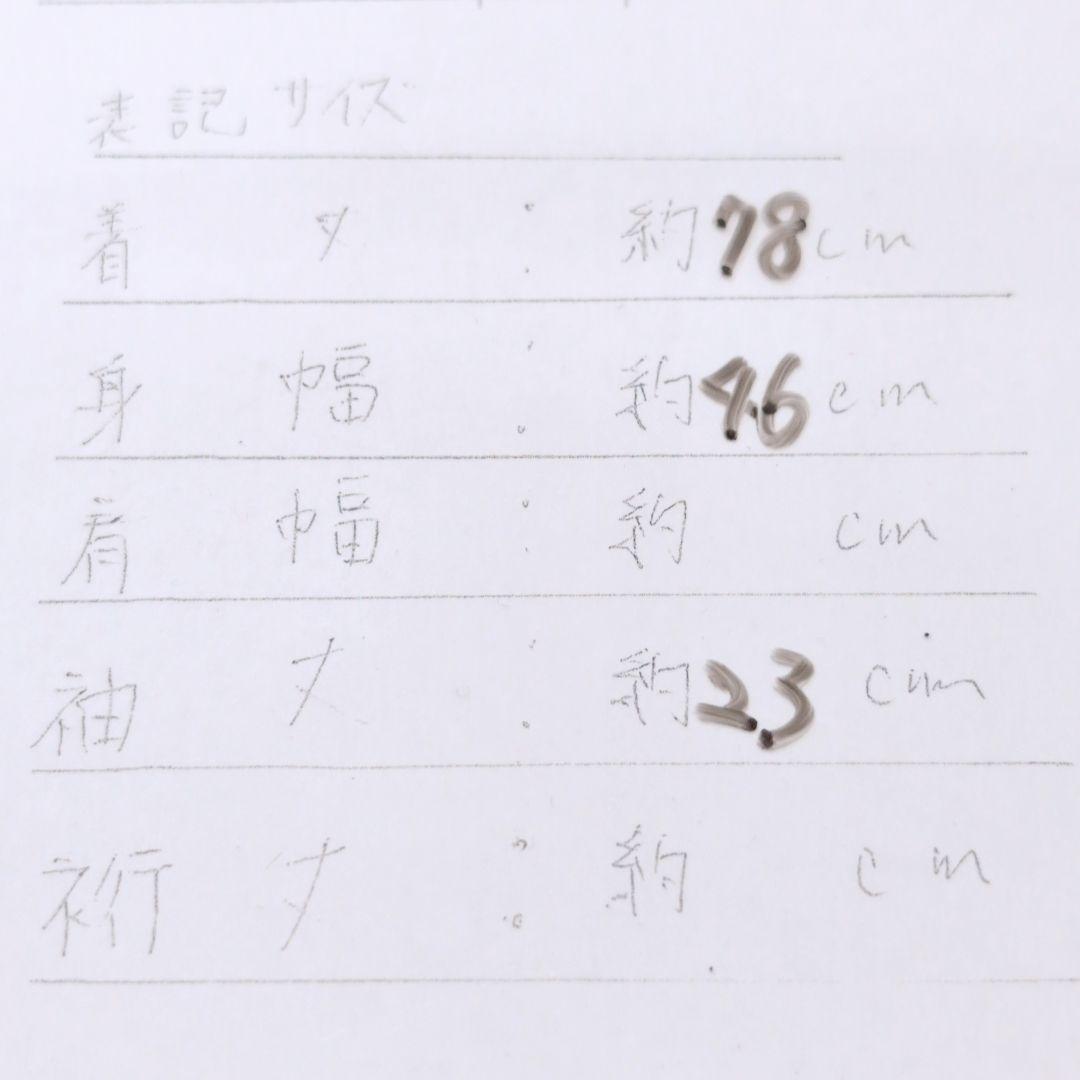 表記サイズ
着丈：約78cm
身幅：約46cm
肩幅：約 cm
袖丈：約23cm
裄丈：約 cm